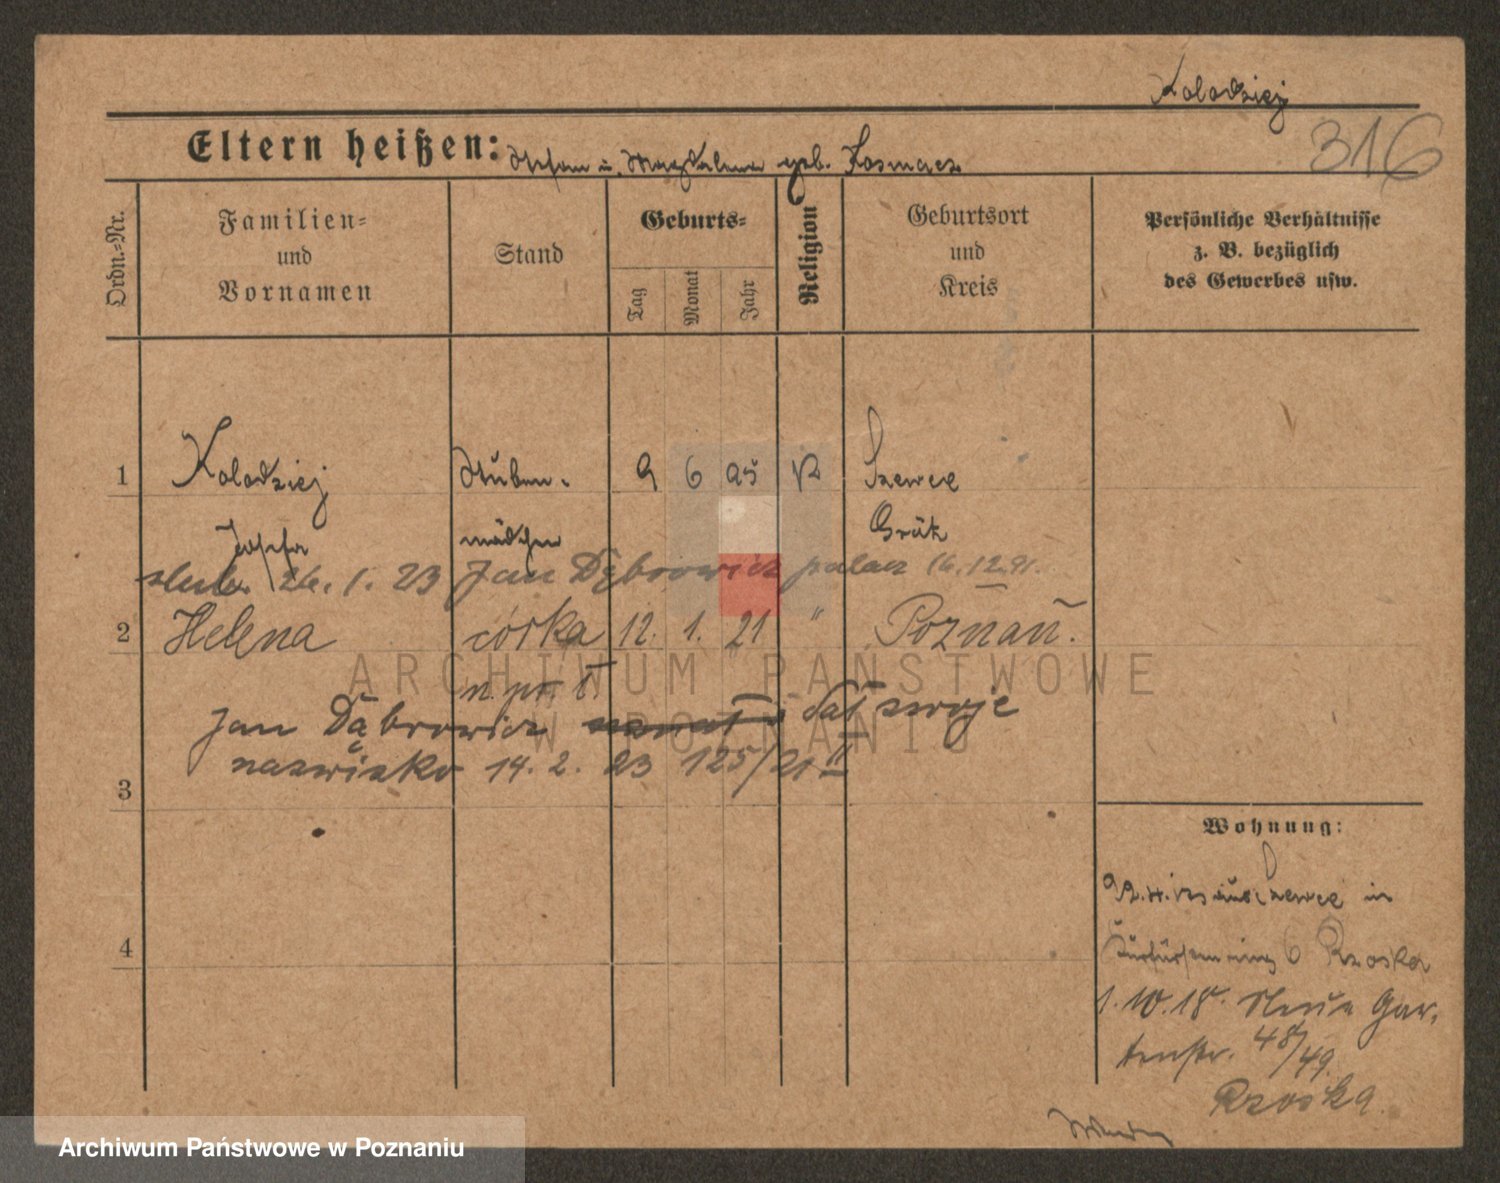 Kolodziej
316
Eltern heißen: Stefan u. Magdalena geb. Kosmacz
Ordn.-Nr.
Familien- und Vornamen
Stand
Geburts-
Tag
Monat
Jahr
Religion
Geburtsort und Kreis
Persönliche Verhältnisse z. B. bezüglich des Gewerbes usw.
1 Kolodziej Stuben- 9 6 95 K Szewce
Josefa mädchen Grätz
ślub. 26. 1. 23 Jan Dąbrowicz 16.12.91.
2 Helena córka 12. 1. 21 " Poznań.
n. pr.
Jan Dąbrowicz dał swoje
nazwisko 14. 2. 23 125/21 II
3
4
Wohnung:
aus Szewce in
6 Rzoska
1. 10. 18. Neue Gar-
tenstr. 48/49.
Rzoska.
ARCHIWUM PAŃSTWOWE
W POZNANIU
Archiwum Państwowe w Poznaniu